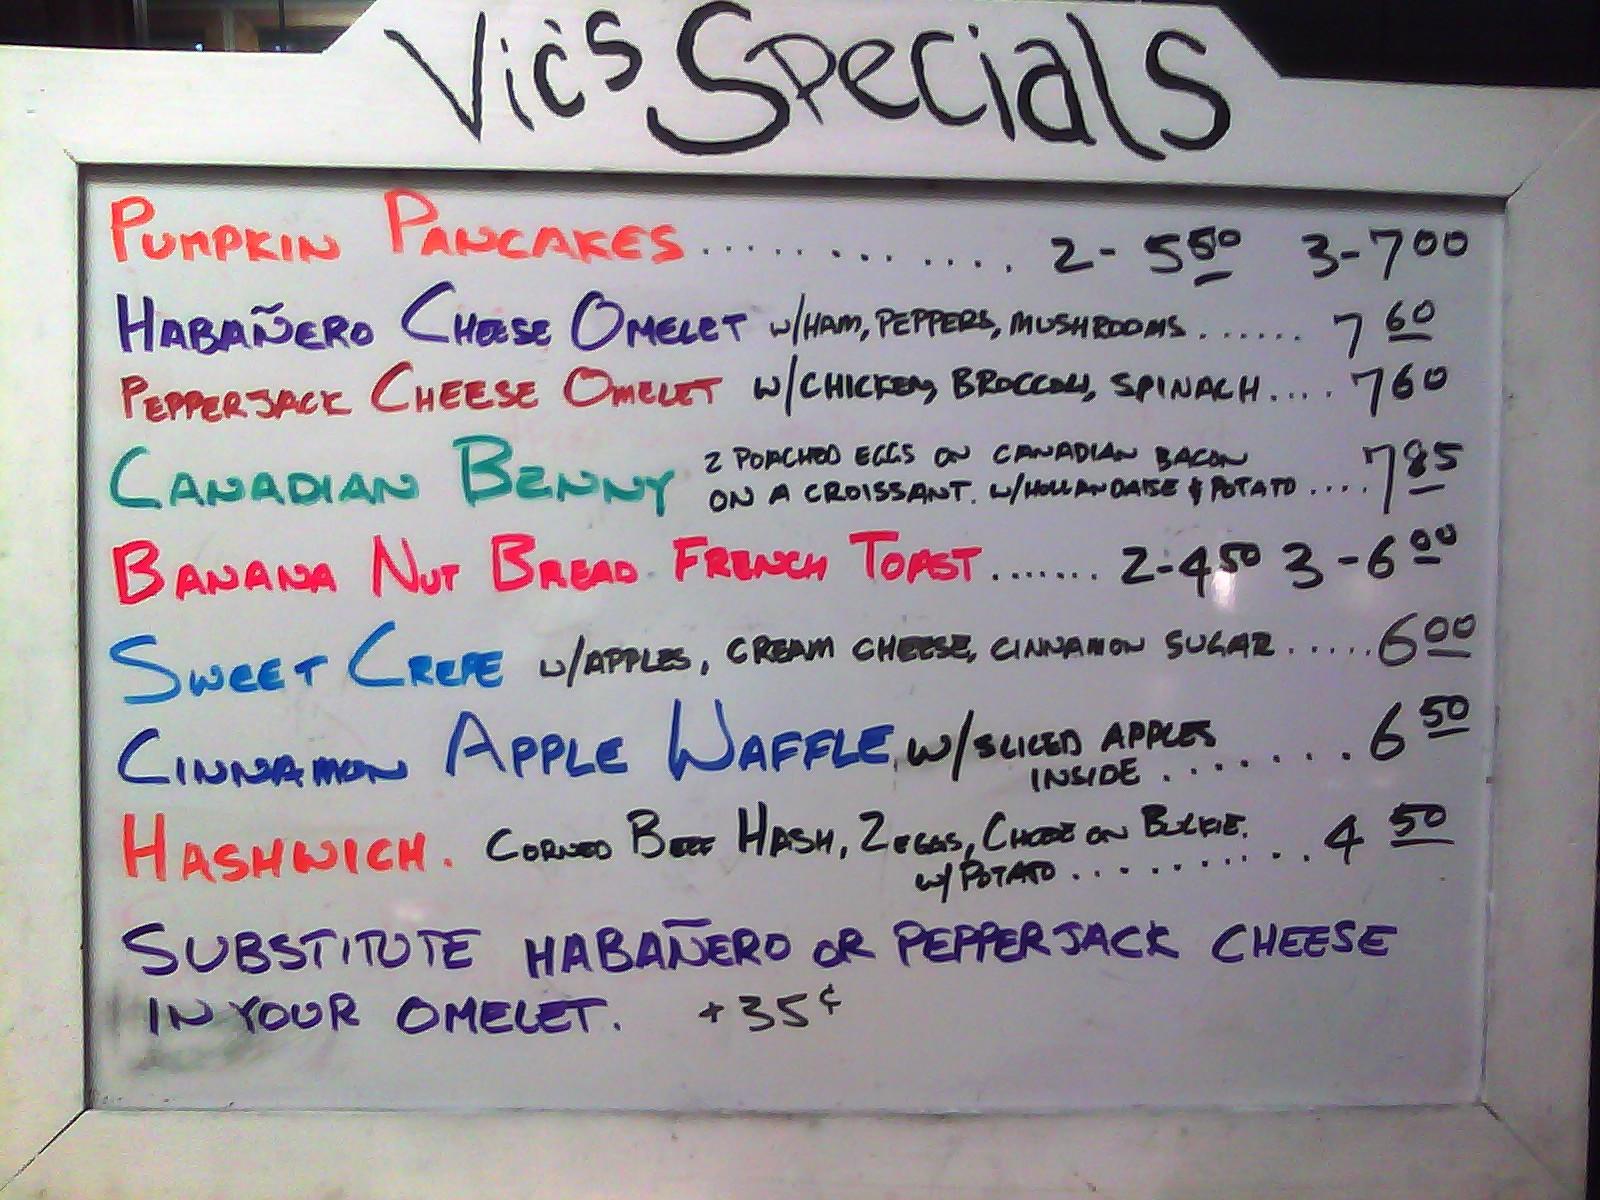 Vic's Specials
PUMPKIN PANCAKES............. 2- 550 3-700
HABAÑERO CHEESE OMELET W/HAM, PEPPERS, MUSHROOMS...... 7 60
PEPPERJACK CHEESE OMELET W/CHICKEN, BROCCOLI, SPINACH.... 760
CANADIAN BENNY 2 POACHED EGGS ON CANADIAN BACON
ON A CROISSANT. W/HOLLANDAISE & POTATO .... 785
BANANA NUT BREAD FRENCH TOAST....... 2-450 3-600
SWEET CREPE W/APPLES, CREAM CHEESE, CINNAMON SUGAR ..... 600
CINNAMON APPLE WAFFLE W/SLICED APPLES
INSIDE ....... 6 50
HASHWICH. CORNED BEEF HASH, 2 EGGS, CHEESE ON BULKIE.
W/ POTATO .......... 4 50
SUBSTITUTE HABAÑERO OR PEPPERJACK CHEESE
IN YOUR OMELET. +35¢